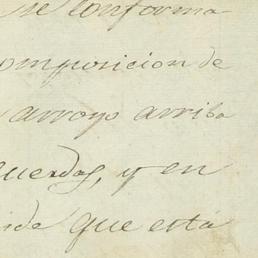 se conforma
omposicion de
arroyo arriba
cuerdas, y en
ide que está